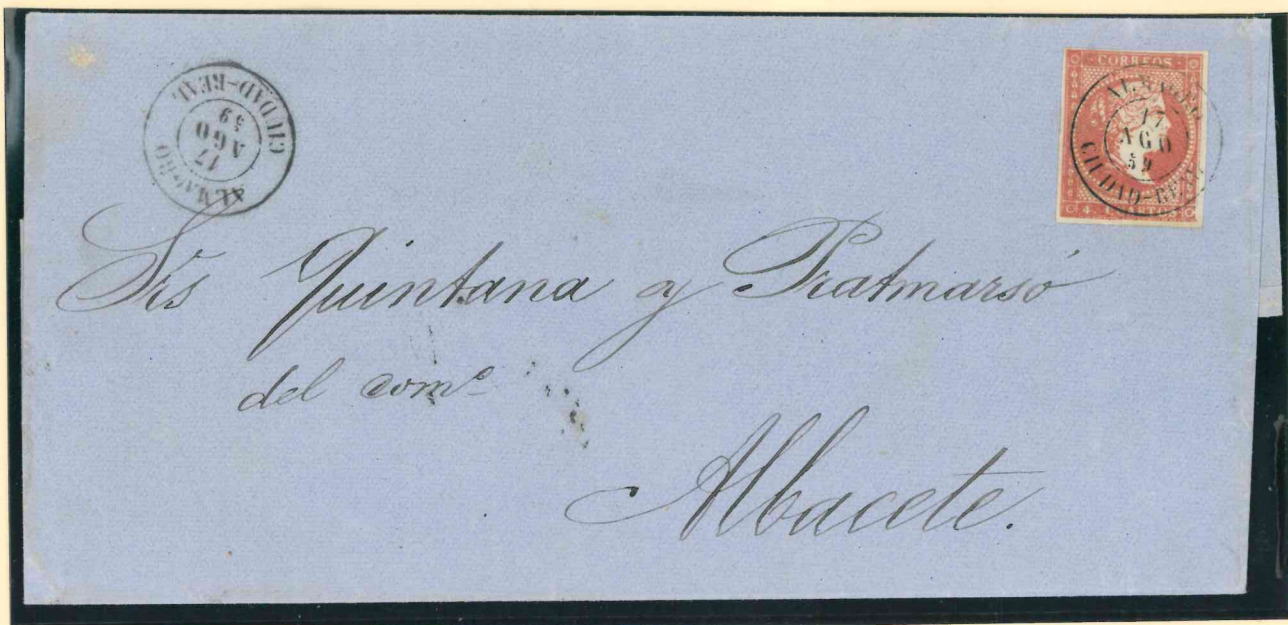 ALMAGRO
17
AGO
59
CIUDAD-REAL
CORREOS
4. CUARTOS
ALMAGRO
17
AGO
59
CIUDAD-REAL
Srs Quintana y Pratmarsó
del comº
Albacete.